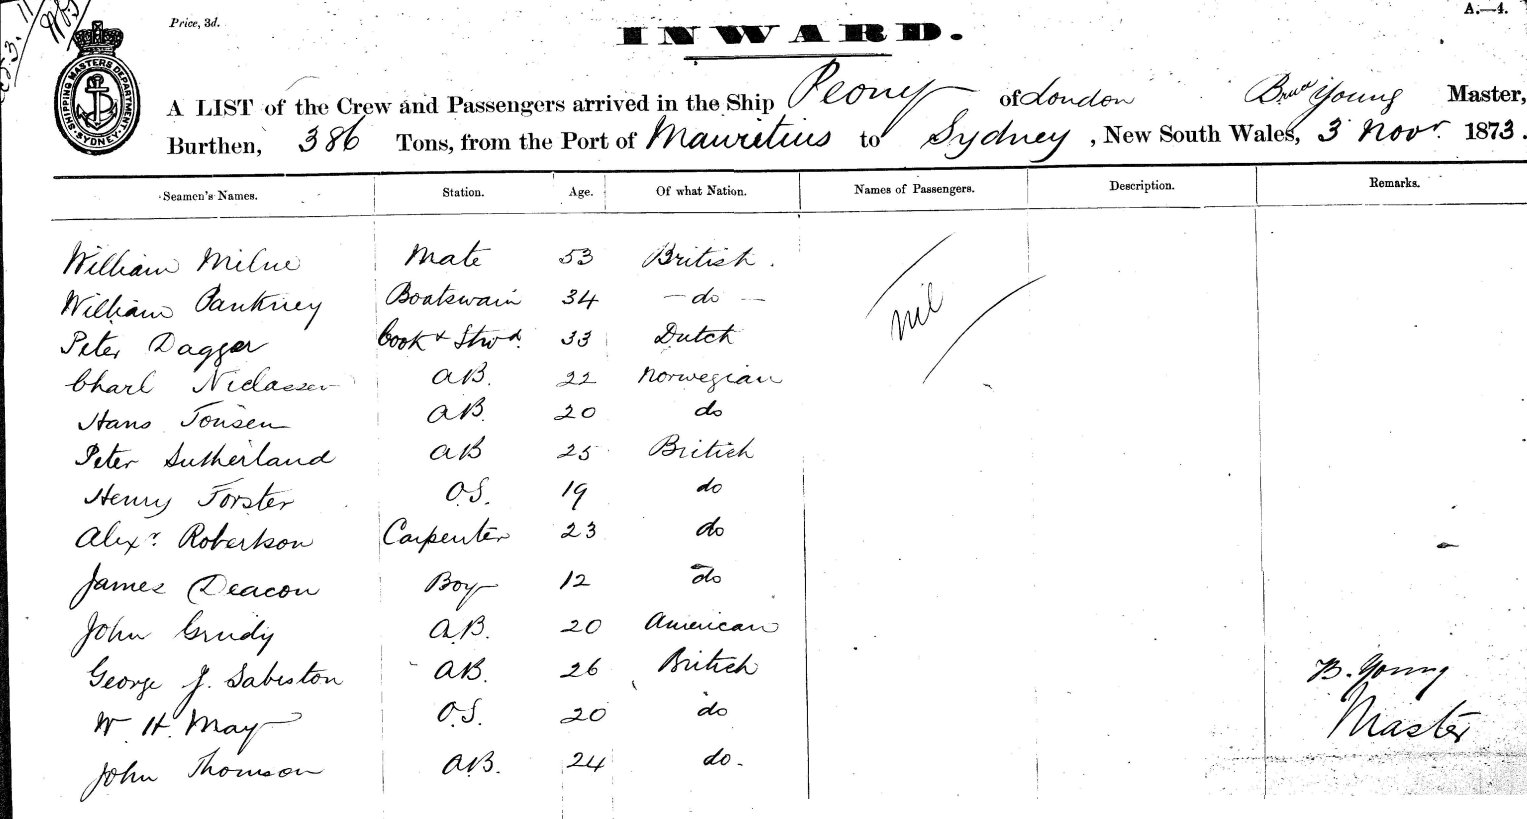 Price, 3d.
A.—4.
INWARD.
SHIPPING MASTERS DEPARTMENT SYDNEY
A LIST of the Crew and Passengers arrived in the Ship Peony of London Young Master,
Burthen, 386 Tons, from the Port of Mauritius to Sydney, New South Wales, 3 Novr. 1873.
Seamen's Names. Station. Age. Of what Nation. Names of Passengers. Description. Remarks.
William Milne Mate 53 British.
William Pankney Boatswain 34 — do —
nil
Peter Dagger Cook & Stwd. 33 Dutch
Charl Niclassen AB. 22 Norwegian
Hans Tonsen AB. 20 do
Peter Sutherland AB 25 British
Henry Forster O.S. 19 do
Alexr. Robertson Carpenter 23 do
James Deacon Boy 12 do
John Grudy A.B. 20 American
George J. Sabiston AB. 26 British B. Young
W. H. May O.S. 20 do Master
John Thomson AB. 24 do.